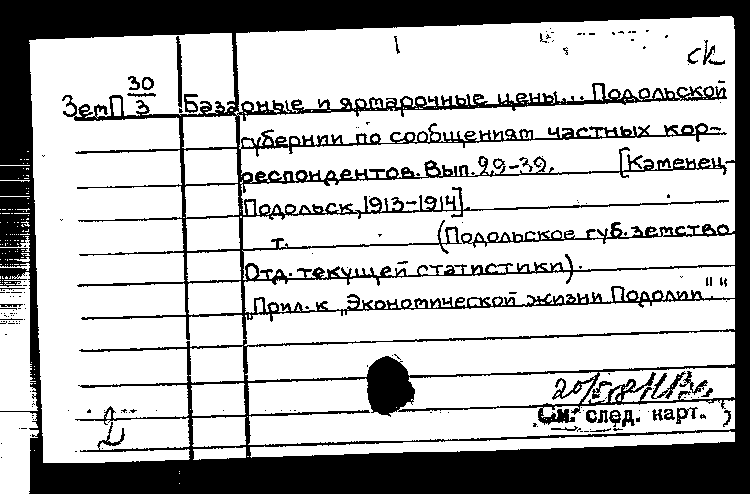 ск
ЗемП 30/3 Базарные и ярмарочные цены... Подольской
губернии по сообщениям частных кор-
респондентов. Вып. 29-39. [Каменец-
Подольск, 1913-1914].
т. (Подольское губ. земство
Отд. текущей статистики).
"Прил. к „Экономической жизни Подолии"."
См. след. карт.
2